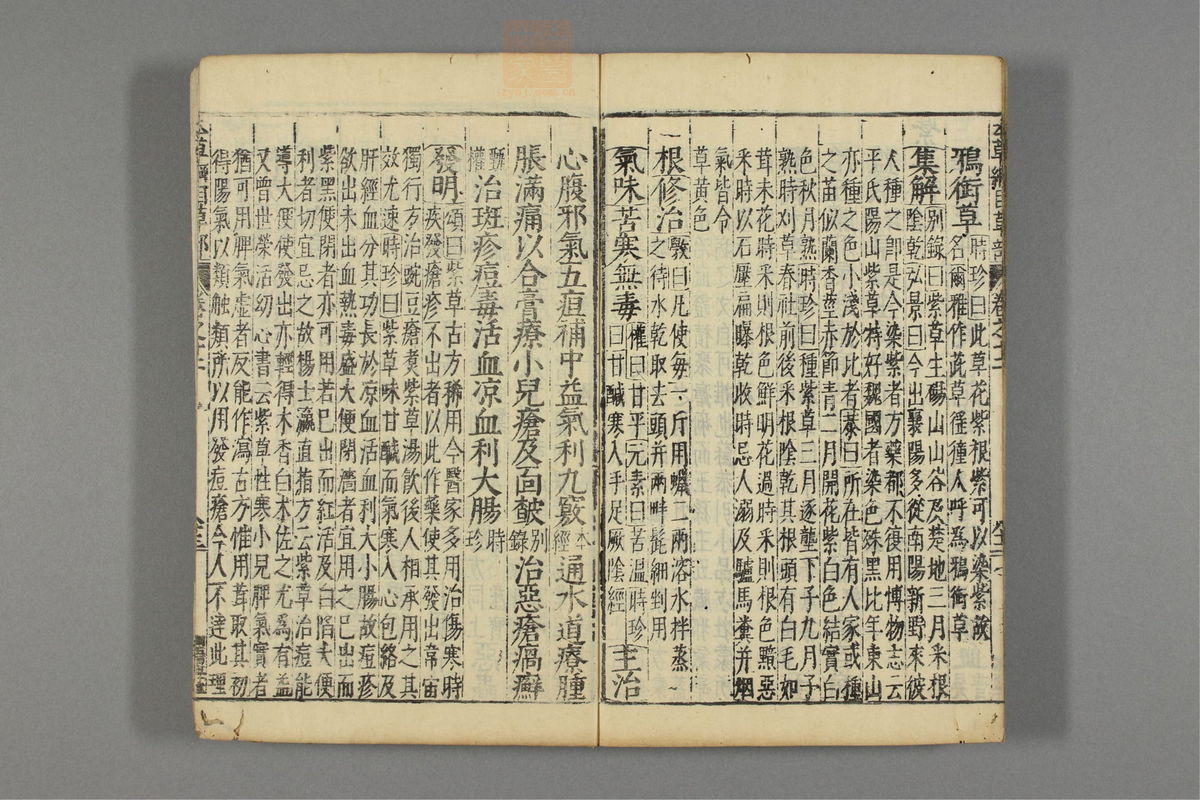 鴉銜草 時珍曰此草花紫根紫可以染紫故
名爾雅作茈草徭徸人呼爲鴉銜草
集解 别錄曰紫草生碭山山谷及楚地三月采根
陰乾弘景曰今出襄陽多從南陽新野來彼
人種之卽是今染紫者方藥都不復用博物志云
平氏陽山紫草特好魏國者染色殊黑比年東山
亦種之色小淺於北者恭曰所在皆有人家或種
之苗似蘭香莖赤節青二月開花紫白色結實白
色秋月熟時珍曰種紫草三月逐壟下子九月子
熟時刈草春社前後采根陰乾其根頭有白毛如
茸未花時采則根色鮮明花過時采則根色黯惡
采時以石壓扁曝乾收時忌人溺及驢馬糞并烟
氣皆令
草黃色
根修治 斆曰凡使每一斤用蠟二兩溶水拌蒸
之待水乾取去頭并兩畔髭細剉用
氣味苦寒無毒 權曰甘平元素曰苦溫時珍
曰甘鹹寒入手足厥陰經 主治
心腹邪氣五疸補中益氣利九竅 本經 通水道療腫
脹滿痛以合膏療小兒瘡及面皶 别錄 治惡瘡瘑癬
甄權 治斑疹痘毒活血凉血利大腸 時珍
發明 頌曰紫草古方稀用今醫家多用治傷寒時
疾發瘡疹不出者以此作藥使其發出常宙
獨行方治豌豆瘡煑紫草湯飲後人相承用之其
效尤速時珍曰紫草味甘鹹而氣寒入心包絡及
肝經血分其功長於凉血活血利大小腸故痘疹
欲出未出血熱毒盛大便閉濇者宜用之已出而
紫黑便閉者亦可用若已出而紅活及白陷大便
利者切宜忌之故楊士瀛直指方云紫草治痘能
導大便使發出亦輕得木香白朮佐之尤爲有益
又曾世榮活幼心書云紫草性寒小兒脾氣實者
猶可用脾氣虛者反能作瀉古方惟用茸取其初
得陽氣以類觸類所以用發痘瘡今人不達此理